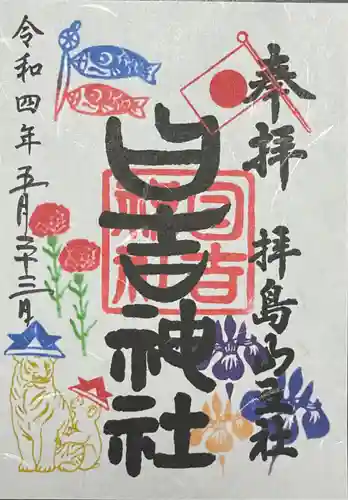 奉拝
拝島山王社
日吉神社
日吉神社
令和四年五月二十三日